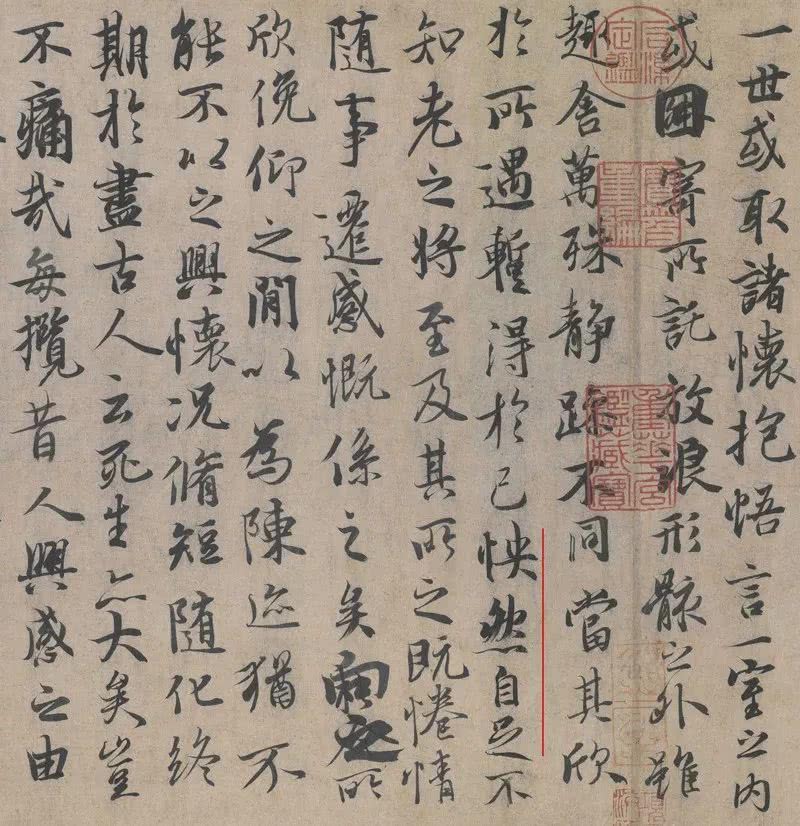 一世或取諸懷抱悟言一室之内
或因寄所託放浪形骸之外雖
趣舍萬殊静躁不同當其欣
於所遇暫得於己怏然自足不
知老之將至及其所之既惓情
随事遷感慨係之矣向之所
欣俛仰之閒以為陳迹猶不
能不以之興懷况脩短随化終
期於盡古人云死生亦大矣豈
不痛哉每攬昔人興感之由